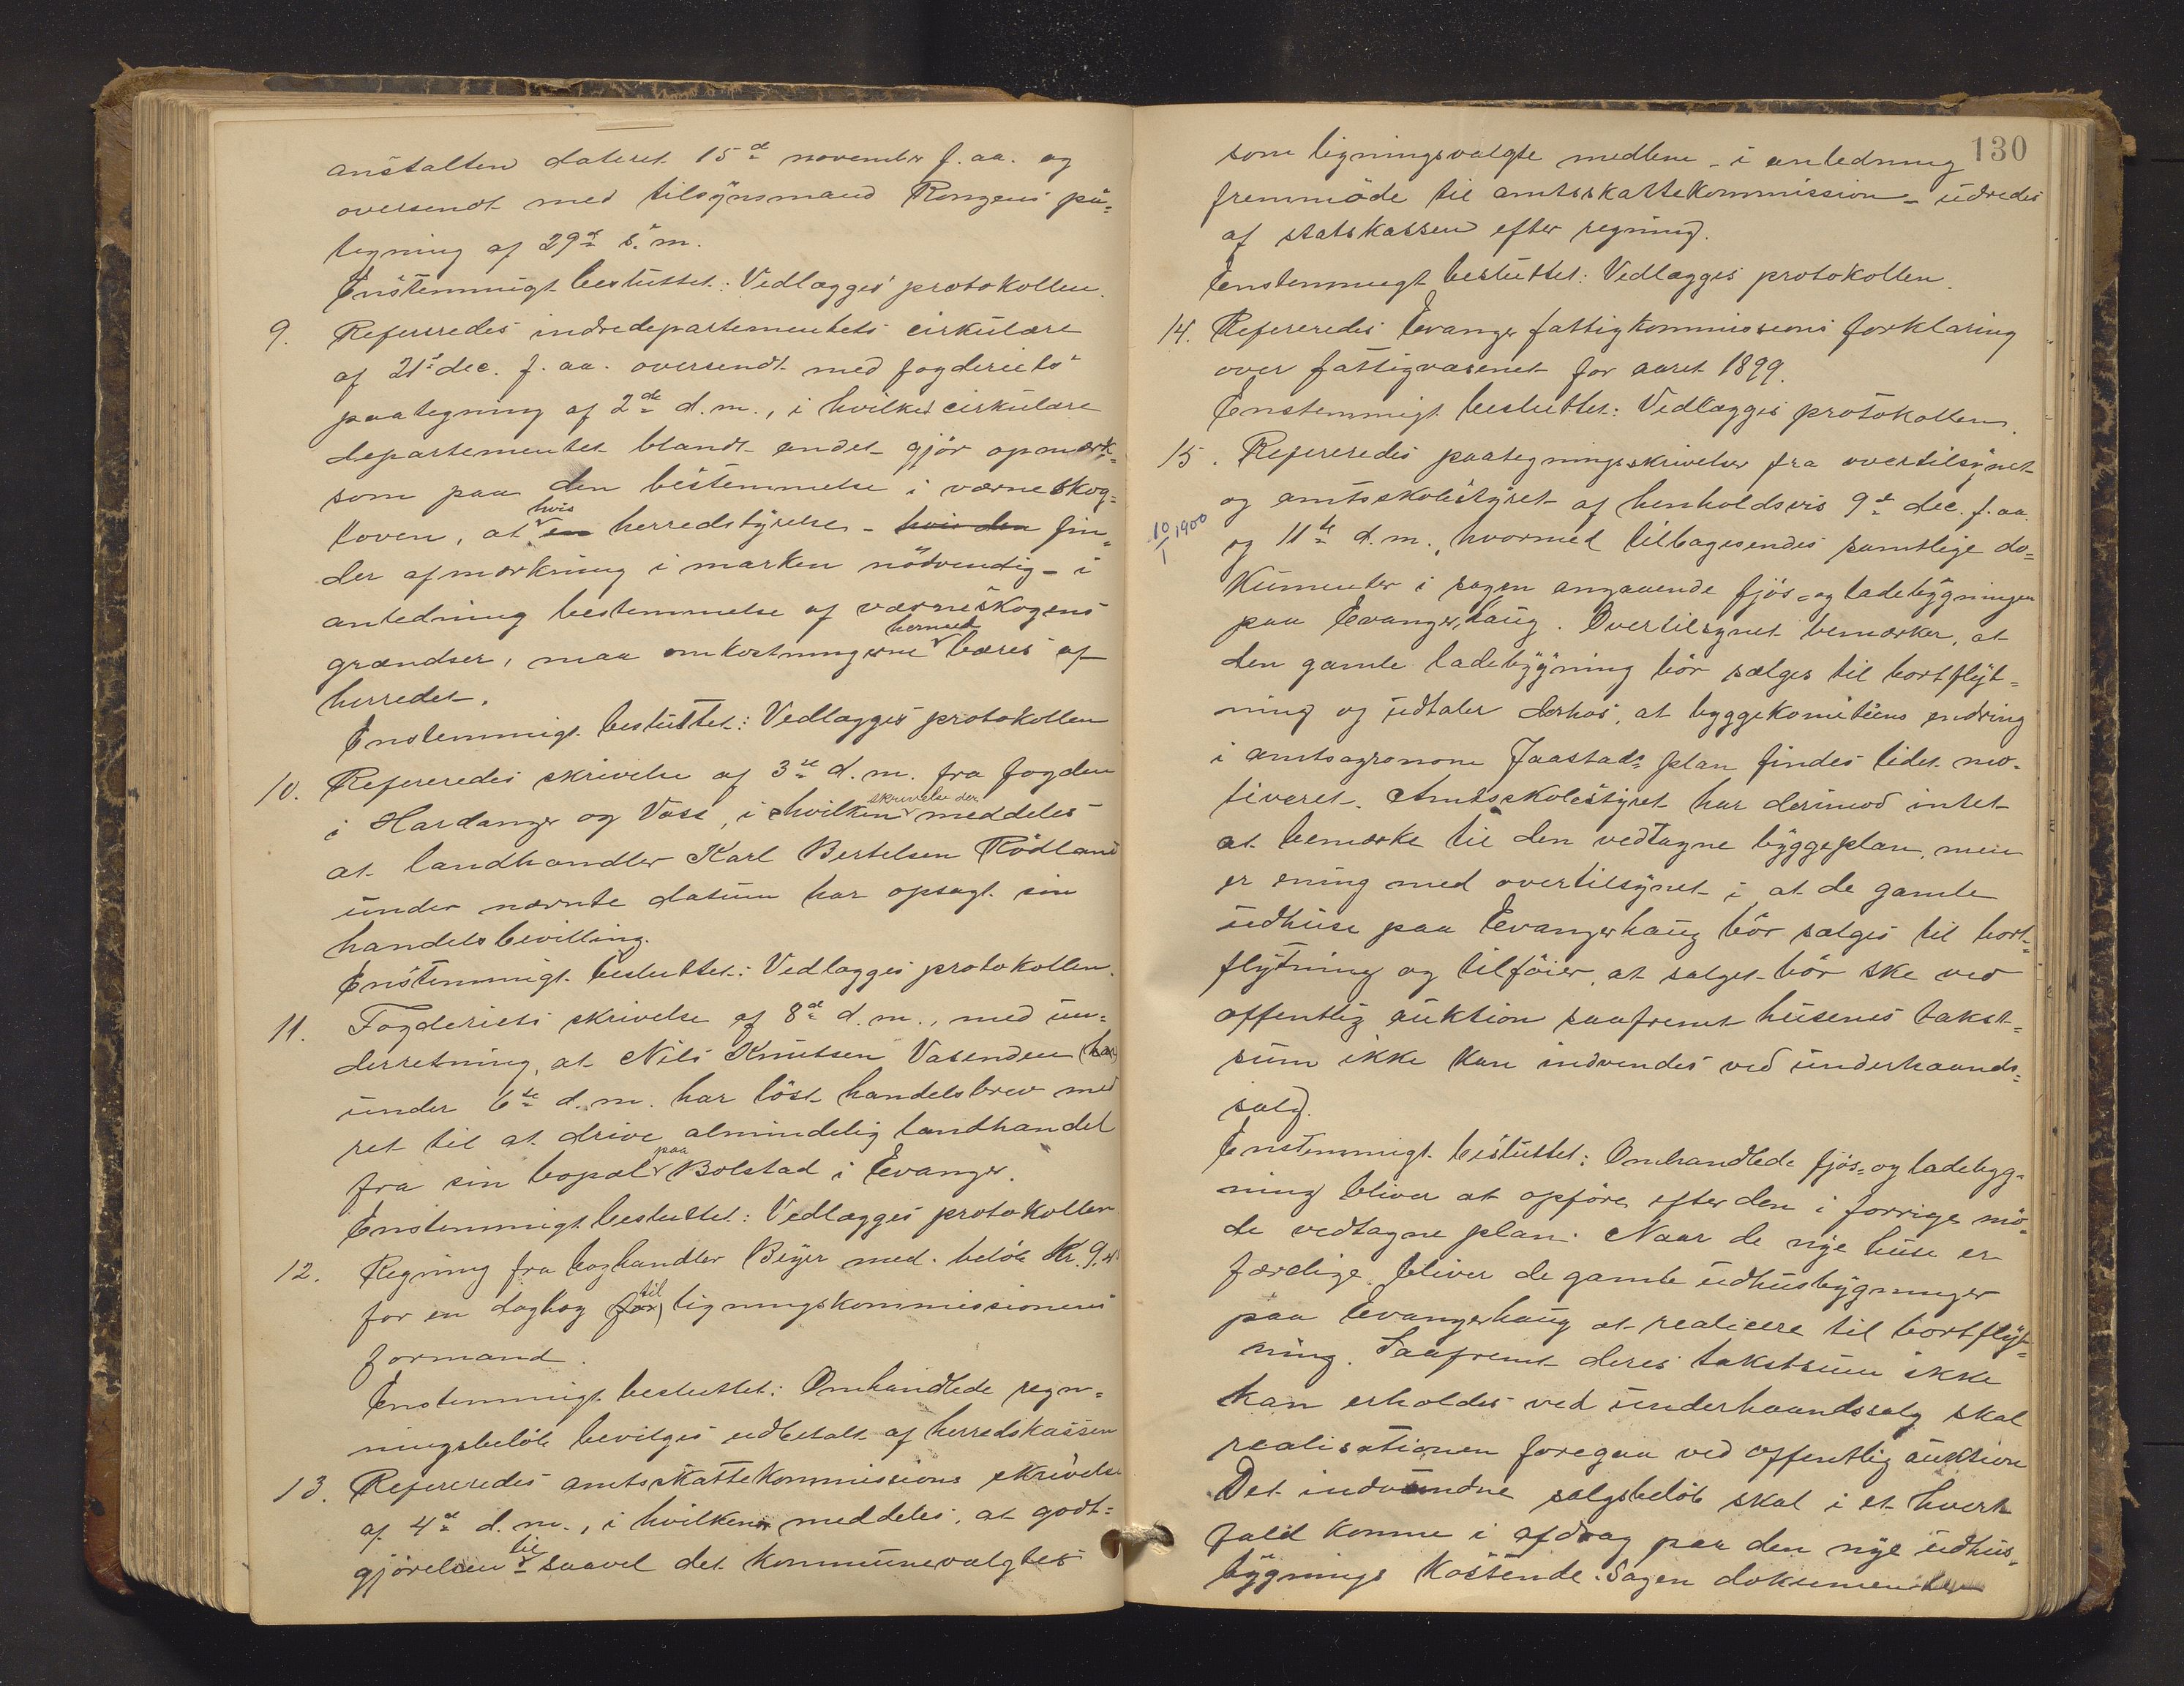 anstalten dateret 15de november f. aa. og
oversendt med tilsynsmand Rongens på=
tegning af 29de s. m.
Enstemmigt besluttet: Vedlægges protokollen.
9. Refereredes indredepartementets cirkulære
af 21de dec. f. aa. oversendt med fogderiets
paategning af 2de d. m., i hvilket cirkulære
departementet blandt andet gjør opmærk=
som paa den bestemmelse i værneskog=
loven, at hvis en herredstyrelse - hvis den fin=
der afmærkning i marken nödvendig - i
anledning bestemmelse af værneskogens
grændser, maa omkostningerne hermed bæres af
herredet.
Enstemmigt besluttet: Vedlægges protokollen
10. Refereredes skrivelse af 3de d. m. fra fogden
i Hardanger og Voss, i hvilken skrivelse der meddeles
at landhandler Karl Bertelsen Rödland
under nævnte datum har opsagt sin
handelsbevilling.
Enstemmigt besluttet: Vedlægges protokollen.
11. Fogderiets skrivelse af 8de d. m., med un=
derretning, at Nils Knutsen Vasenden (har)
under 6te d. m. har löst handelsbrev med
ret til at drive almindelig landhandel
fra sin bopæl paa Bolstad i Evanger.
Enstemmigt besluttet: Vedlægges protokollen
12. Regning fra boghandler Beyer med. belöb Kr. 9.
for en dagbog (for) til ligningskommissionens
formand.
Enstemmigt besluttet: Omhandlede regn=
ningsbelöb bevilges udbetalt af herredskassen
13. Refereredes amtsskattekommissions skrivelse
af 4de d. m., i hvilken meddeles, at godt=
gjörelsen til saavel det kommunevalgtes
130
som ligningsvalgte medlem - i anledning
fremmöde til amtsskattekommission - udredes
af statskassen efter regning.
Enstemmigt besluttet: Vedlægges protokollen.
14. Refereredes Evanger fattigkommissions forklaring
over fattigvæsenet for aaret 1899.
Enstemmigt besluttet: Vedlægges protokollen.
15. Refereredes paategningsskrivelser fra overtilsynet
og amtsskolestyret af henholdsvis 9de dec. f. aa.
10/1 1900
og 11te d. m., hvormed tilbagesendes samtlige do=
kumenter i sagen angaaende fjös= og ladebygningen
paa Evangerhaug. Overtilsynet bemærker, at
den gamle ladebygning bör sælges til bortflyt=
ning og udtaler derhos, at byggekomiteens endring
i amtsagronom Jaastads plan findes lidet mo=
tiveret. Amtsskolestyret har derimod intet
at bemærke til den vedtagne byggeplan, men
er ening med overtilsynet i, at de gamle
udhuse paa Evangerhaug bör sælges til bort=
flytning og tilföier, at salget bör ske ved
offentlig auktion saafremt husenes takst=
sum ikke kan indvendes ved underhaands=
salg.
Enstemmigt besluttet: Omhandlede fjös= og ladebyg=
ning bliver at opföre efter den i forrige mö=
de vedtagne plan. Naar de nye huse er
færdige bliver de gamle udhusbygninger
paa Evangerhaug at realisere til bortflyt=
ning. Saafremt deres takstsum ikke
kan erholdes ved underhaandssalg skal
realisationen foregaa ved offentlig auktion
Det indvundne salgsbelöb skal i et hvert
fald komme i afdrag paa den nye udhus=
bygnings kostende. Sagen dokumenter